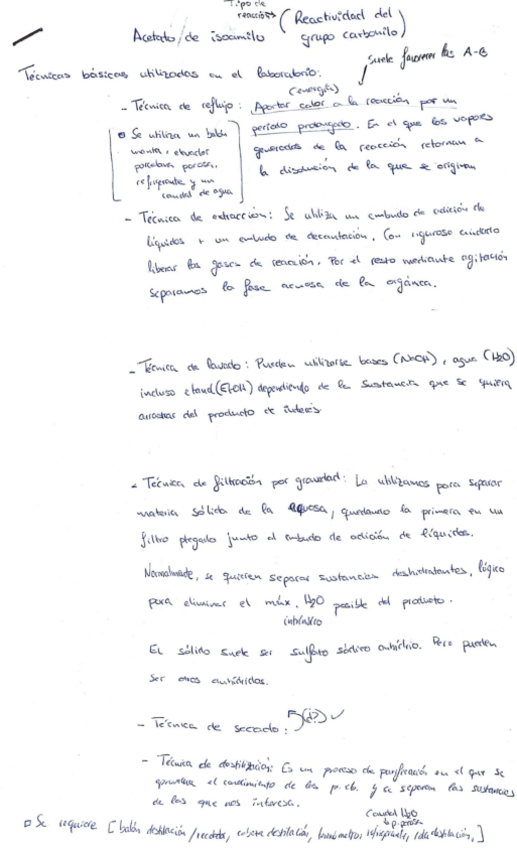 Tipo de
reacciones (Reactividad del
grupo carbonilo)
Acetato de isoamilo
suele favorecer los A-B
Técnicas básicas utilizadas en el laboratorio:
(energía)
- Técnica de reflujo: Aportar calor a la reacción por un
periodo prolongado. En el que los vapores
generados de la reacción retornan a
la disolución de la que se originan
Se utiliza un balón
manta, elevador
porcelana porosa,
refrigerante y un
caudal de agua
- Técnica de extracción: Se utiliza un embudo de adición de
líquidos + un embudo de decantación. Con riguroso cuidado
liberar los gases de reacción. Por el resto mediante agitación
separamos la fase acuosa de la orgánica.
- Técnica de lavado: Pueden utilizarse bases (NaOH), agua (H2O)
incluso etanol (EtOH) dependiendo de la sustancia que se quiera
arrastrar del producto de interés
- Técnica de filtración por gravedad: La utilizamos para separar
materia sólida de la acuosa, quedando la primera en un
filtro plegado junto al embudo de adición de líquidos.
Normalmente, se quieren separar sustancias deshidratantes, lógico
para eliminar el máx. H2O posible del producto.
intrínseco
El sólido suele ser sulfato sódico anhidrio. Pero pueden
ser otros anhídridos.
- Técnica de secado: 5(d?) ✓
- Técnica de destilación: Es un proceso de purificación en el que se
aprovecha el conocimiento de los p. eb. y se separan las sustancias
de las que nos interesa.
Caudal H2O
p. porosa
Se requiere [balón destilación / recolector, cabeza destilación, termómetro, refrigerante, cola destilación,]